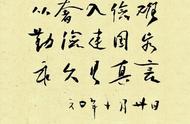 从奢入俭难
勤俭建国家
永久是真言
年十月廿日